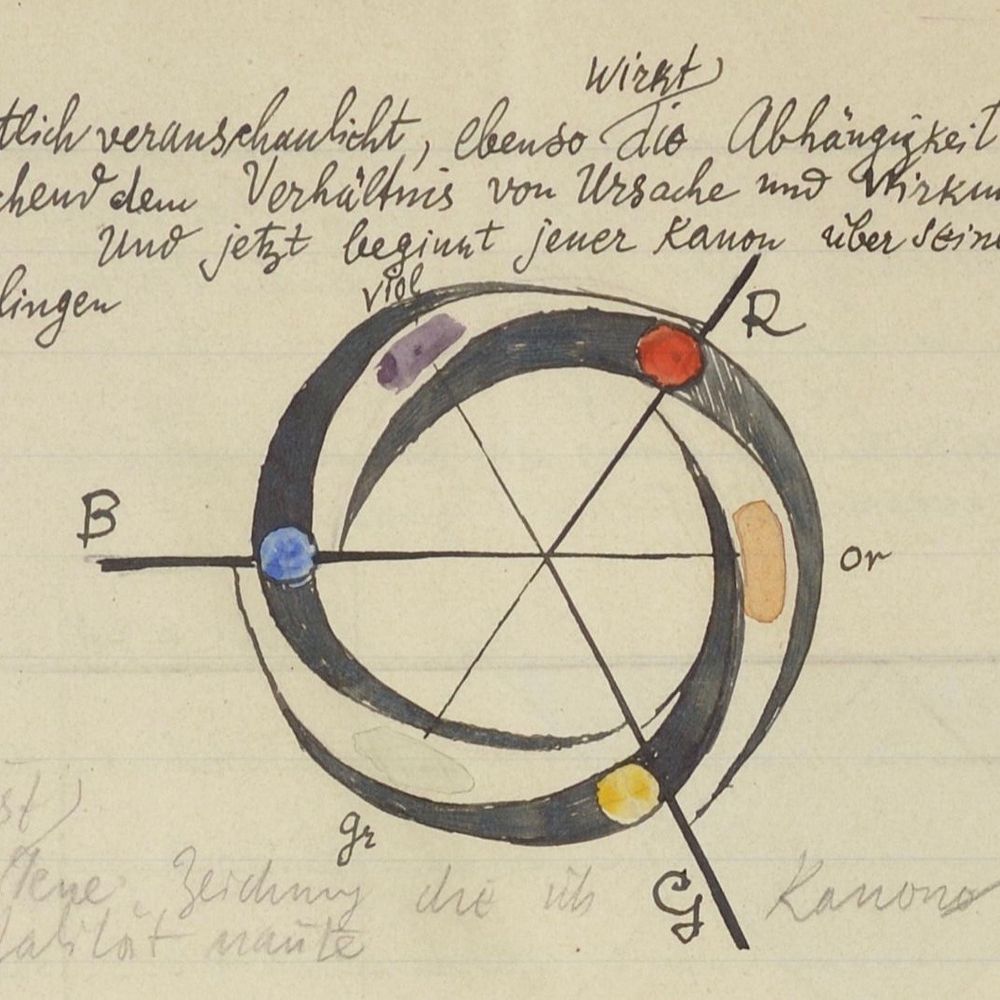 wirkt
tlich veranschaulicht, ebenso die Abhängigkeit
chend dem Verhältnis von Ursache und Wirkun
Und jetzt beginnt jener Kanon über seine
lingen
viol
R
B
or
gr
G
st
Zeichnung die ich Kanon
nannte